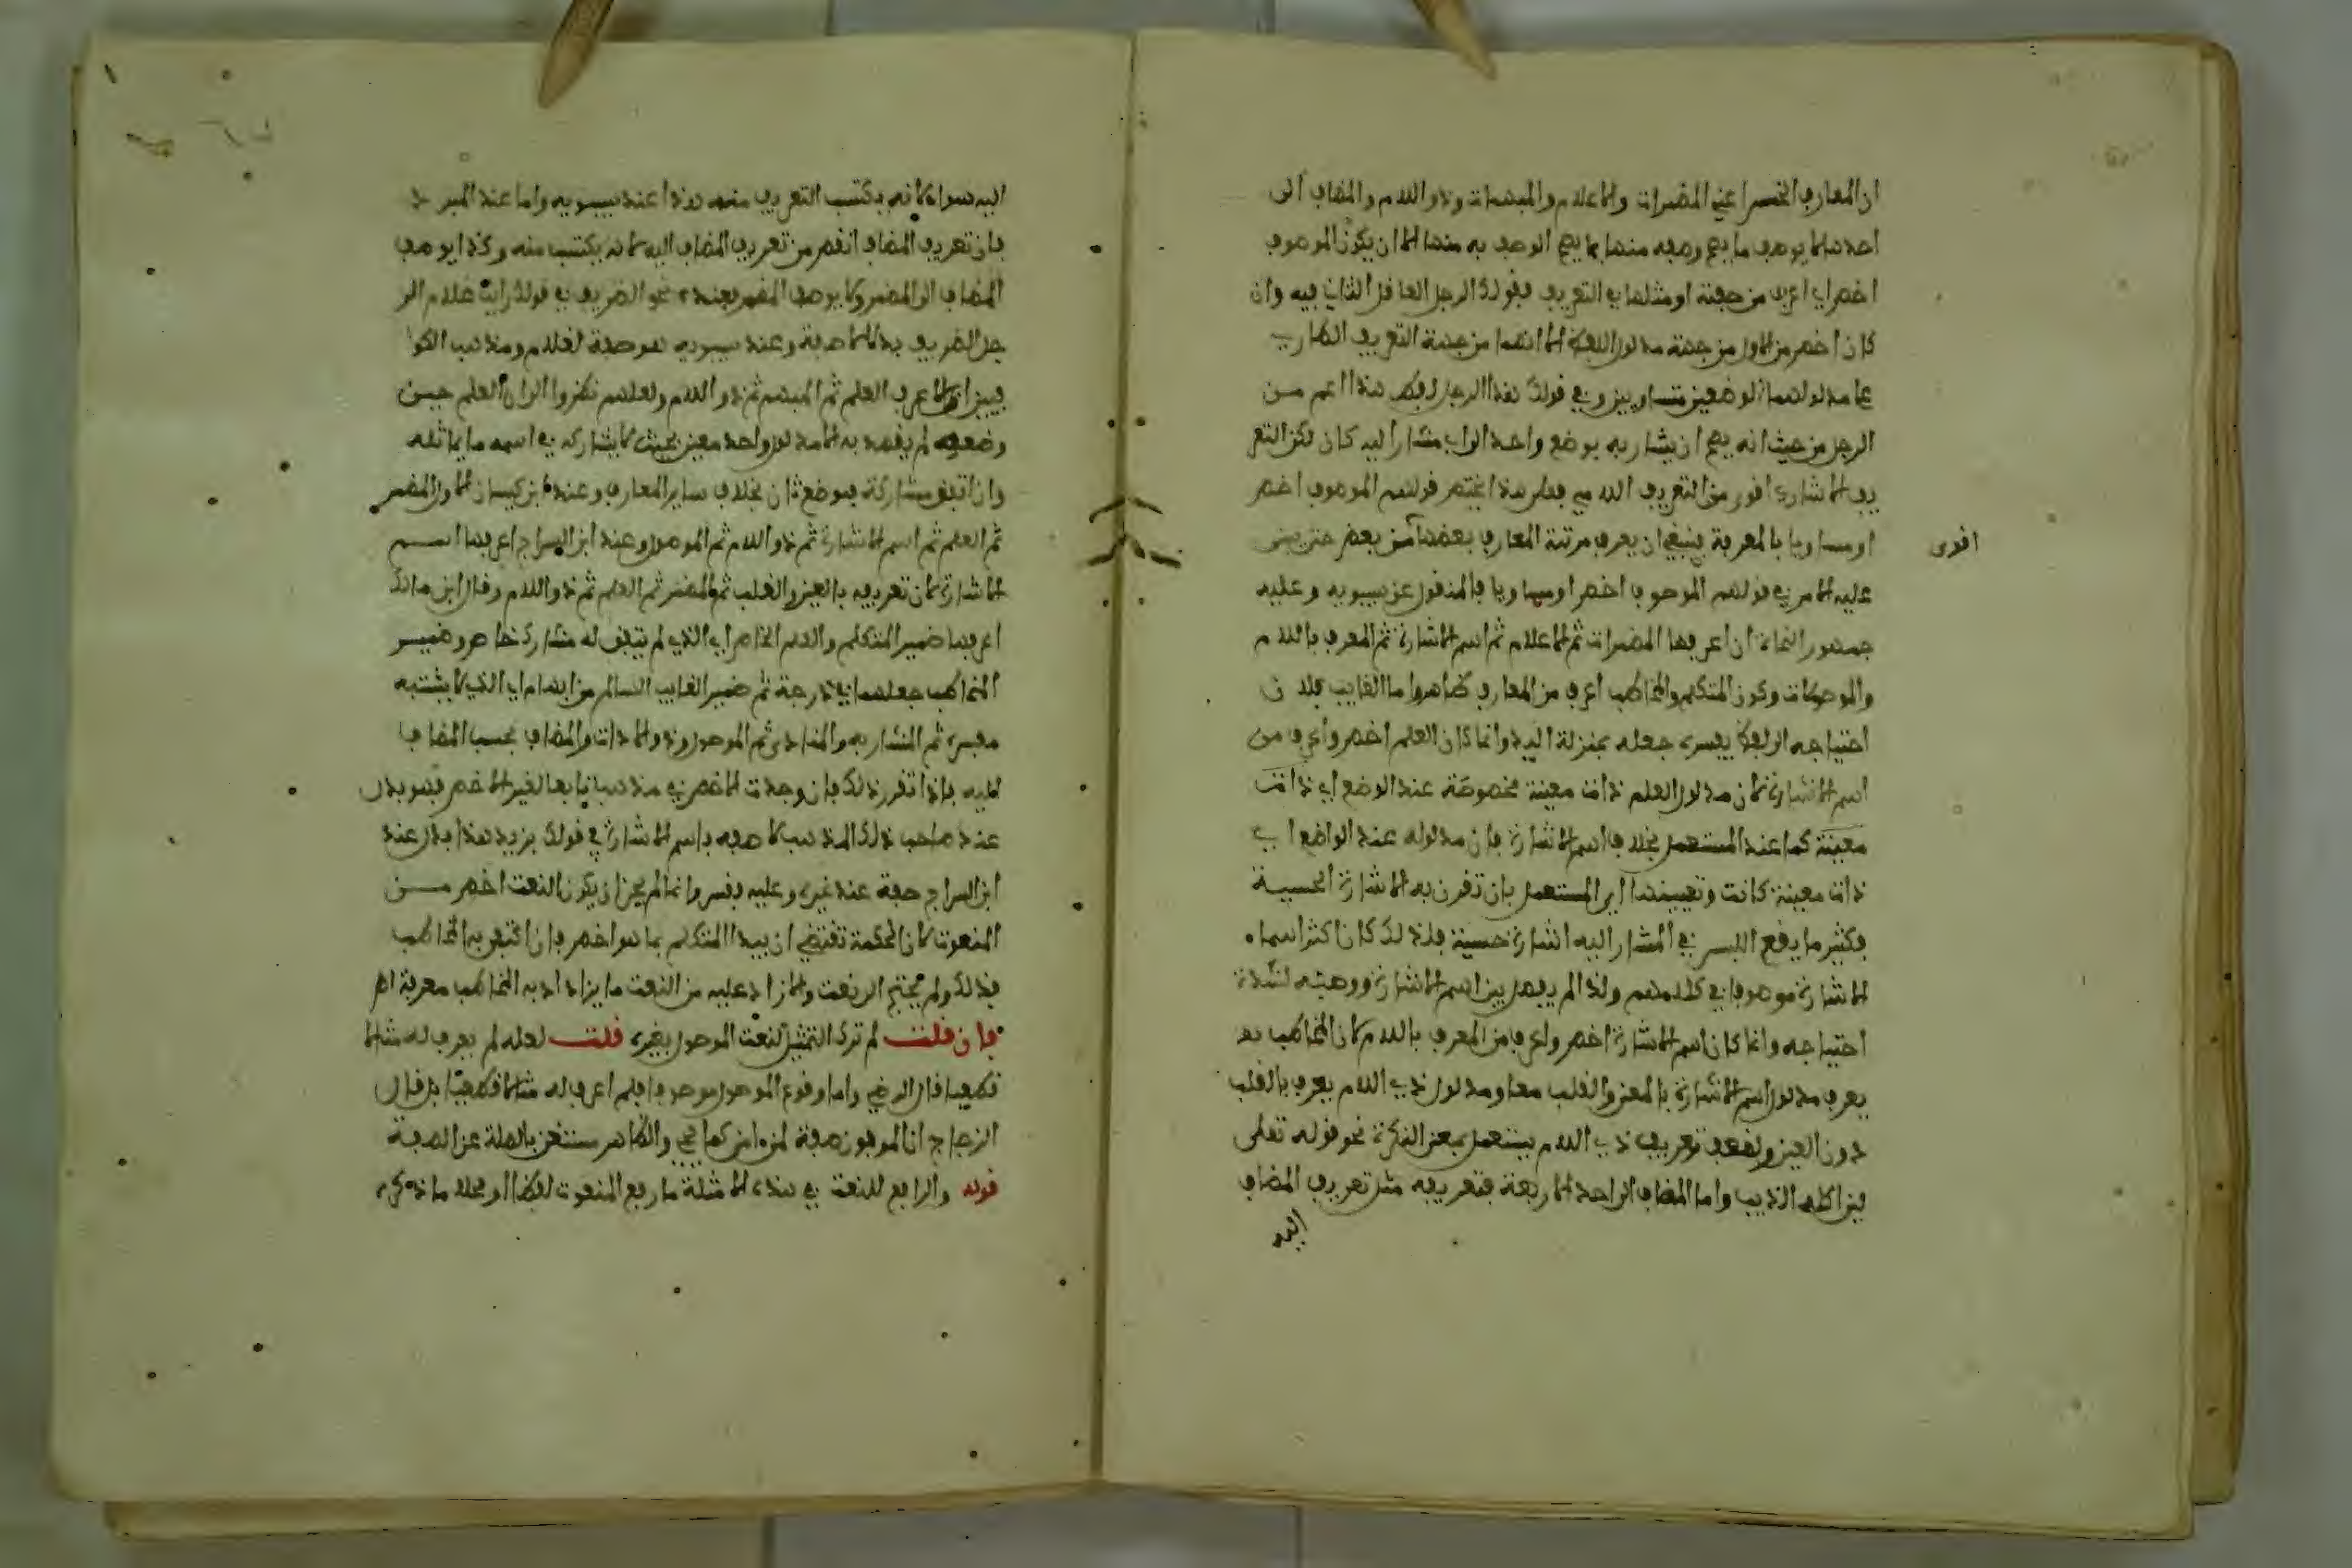 ان المعارف الخمس اعني المضمرات والاعلام والمبهمات وذو اللام والمضاف الى
احدها لا يوصف ما يصح وصفه منها بما يصح الوصف به منها الا ان يكون الموصوف
اخص اي اعرف من صفته او مثلها في التعريف فقولك الرجل العاقل الثاني فيه وان
كان اخص من الاول من جهة مدلول اللفظ الا انهما من جهة التعريف الطاري
على مدلولهما الوضعيين متساويين وفي قولك هذا الرجل لفظ هذا اعم من
الرجل من حيث انه يصح ان يشار به بوضع واحد الى اي مشار اليه كان لكن التعر
يف الاشاري اقوى من التعريف اللامي فعلى هذا يختص قولهم الموصوف اخص
او مساويا بالمعرفة ينبغي ان يعرف مرتبة المعارف بعضها من بعض حتى يبنى
اقوى
عليه الامر في قولهم الموصوف اخص او مساويا فالمنقول عن سيبويه وعليه
جمهور النحاة ان اعرفها المضمرات ثم الاعلام ثم اسم الاشارة ثم المعرف باللام
والموصولات وكون المتكلم والمخاطب اعرف من المعارف ظاهر واما الغايب فلان
احتياجه الى لفظ يفسره جعله بمنزلة اليد وانما كان العلم اخص واعرف من
اسم الاشارة لان مدلول العلم ذات معينة مخصوصة عند الوضع اي ذات
معينة كما عند المستعمل بخلاف اسم الاشارة فان مدلوله عند الواضع اي
ذات معينة كانت وتعيينها الى المستعمل بان تقرن به الاشارة الحسية
فكثير ما يقع اللبس في المشار اليه اشارة حسية فلذلك كان اكثر اسماء
الاشارة موصوفا في كلامهم ولذا لم يفصل بين اسم الاشارة ووصفه لشدة
احتياجه وانما كان اسم الاشارة اخص واعرف من المعرف باللام لان المخاطب
يعرف مدلول اسم الاشارة بالعين والقلب معا ومدلول ذي اللام يعرف بالقلب
دون العين ولضعف تعريف ذي اللام يستعمل بمعنى النكرة نحو قوله تعلى
لئن اكله الذيب واما المضاف الى احد الاربعة فتعريفه مثل تعريف المضاف
اليه
اليه سواء لانه يكتسب التعريف منه هذا عند سيبويه واما عند المبرد
فان تعريف المضاف انقص من تعريف المضاف اليه لانه يكتسب منه وكذا يوصف
المضاف الى المضمر ولا يوصف المضمر بعنده نحو الظريف في قولك رايت غلام الر
جل الظريف بدل لا صفة وعند سيبويه هو صفة لغلام ومذهب الكو
فيين ان الاعرف العلم ثم المبهم ثم ذو اللام ولعلهم نظروا الى ان العلم حين
وضعه لم يقصد به الا مدلول واحد معين بحيث لا يشاركه في اسمه ما يماثله
وان اتفق مشاركة فبوضع ثان بخلاف ساير المعارف وعند ابن كيسان الاول المضمر
ثم العلم ثم اسم الاشارة ثم ذو اللام ثم الموصول وعند ابن السراج اعرفها اسم
الاشارة لان تعريفه بالعين والقلب ثم المضمر ثم العلم ثم ذو اللام وقال ابن مالك
اعرفها ضمير المتكلم والعلم الخاص اي الذي لم يتفق له مشارك خاص وضمير
المخاطب جعلهما في درجة ثم ضمير الغايب السالم من ابهام اي الذي لا يشتبه
مفسره ثم المشار به والمنادى ثم الموصول وذو الاداة والمضاف بحسب المضاف
اليه فاذا تقرر ذلك فان وجدت الاخص في مذهب تابعا لغير الاخص فهو بدل
عند صاحب ذلك المذهب لا صفة باسم الاشارة في قولك بزيد هذا بدل عند
ابن السراج صفة عند غيره وعليه فقس وانما لم يجز ان يكون النعت اخص من
المنعوت لان الحكمة تقتضي ان يبدا المتكلم بما هو اخص فان اكتفى به المخاطب
فذلك ولم يحتج الى نعت والا زاد عليه من النعت ما يزداد به المخاطب معرفة اهـ
فان قلت لم ترك التمثيل لنعت الموصول بغيره قلت لعله لم يعرف له مثالا
قطعيا قال الرضي واما وقوع الموصول موصوفا فلم اعرف له مثالا قطعيا بل قال
الزجاج ان الموفون صفة لمن امن كما يجي والظاهر
قوله والرافع للنعت في هذه الامثلة ما رفع المنعوت لفظا او محلا ما ذكره